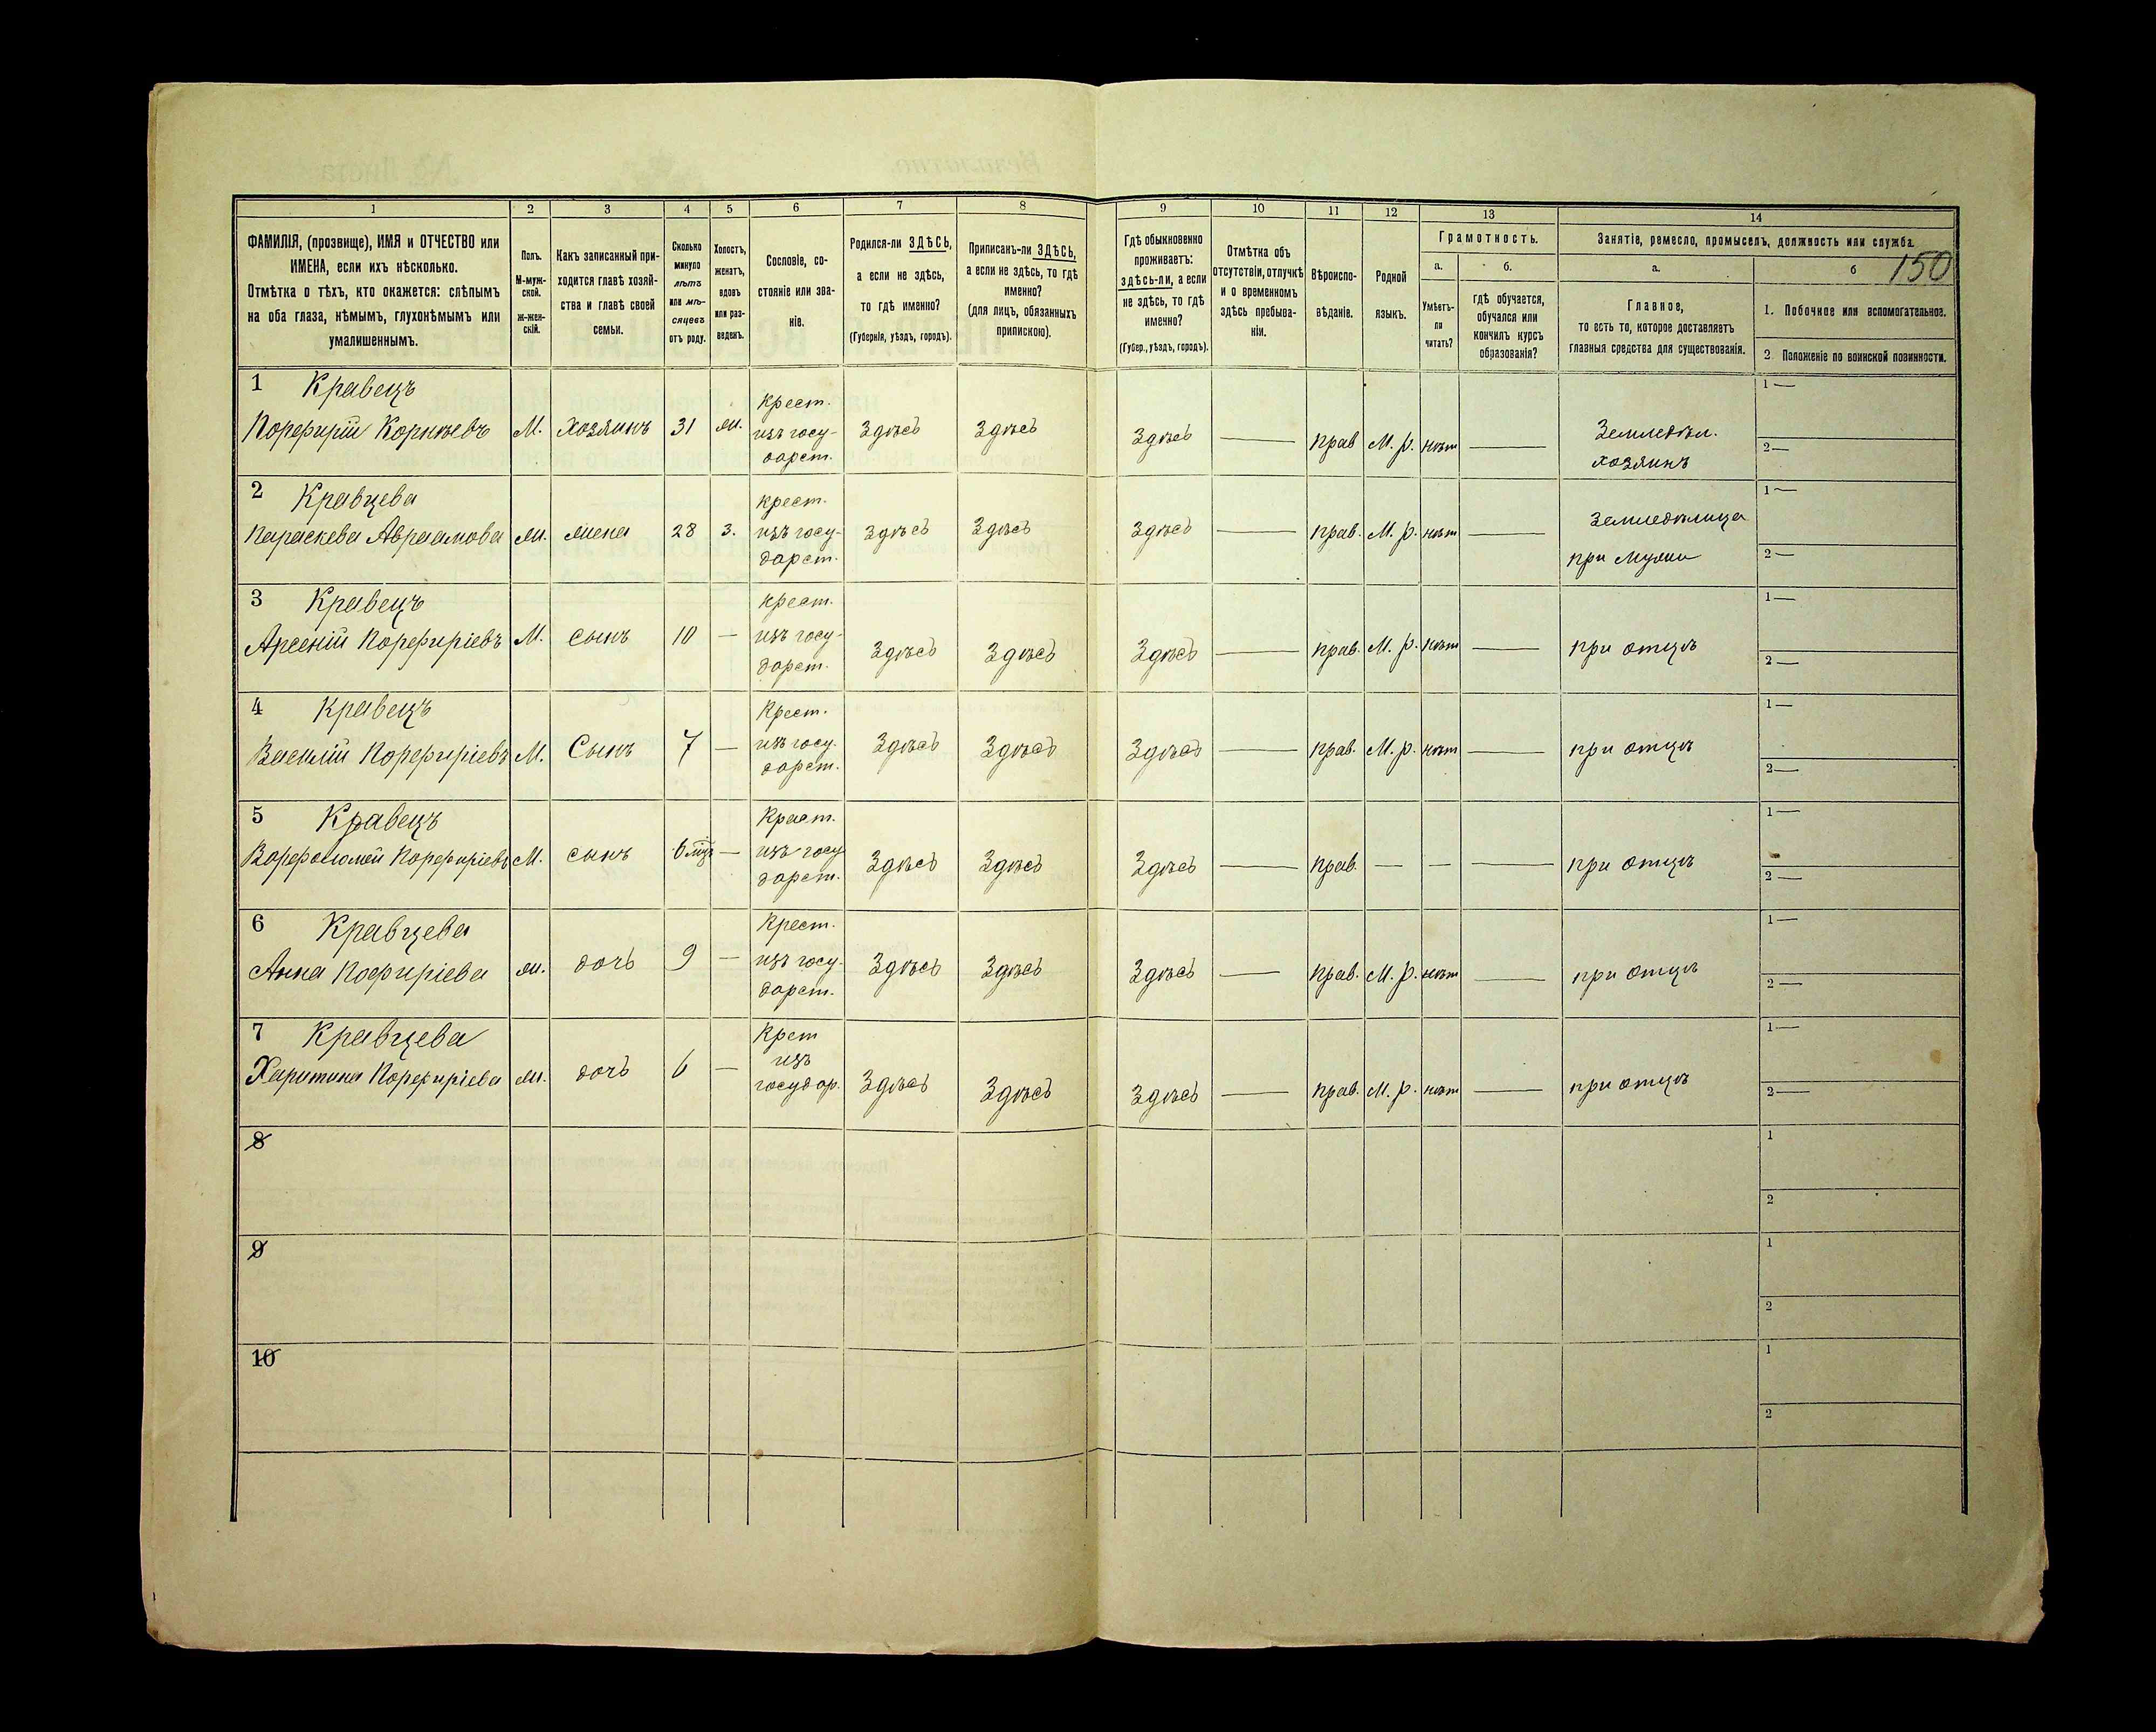 1 2 3 4 5 6 7 8 9 10 11 12 13 14
ФАМИЛІЯ, (прозвище), ИМЯ и ОТЧЕСТВО или
ИМЕНА, если ихъ нѣсколько.
Отмѣтка о тѣхъ, кто окажется: слѣпымъ
на оба глаза, нѣмымъ, глухонѣмымъ или
умалишеннымъ.
Полъ.
М-муж-
ской.
Ж-жен-
скій.
Какъ записанный при-
ходится главѣ хозяй-
ства и главѣ своей
семьи.
Сколько
минуло
лѣтъ
или мѣ-
сяцевъ
отъ роду.
Холостъ,
женатъ,
вдовъ
или раз-
веденъ.
Сословіе, со-
стояніе или зва-
ніе.
Родился-ли ЗДѢСЬ,
а если не здѣсь,
то гдѣ именно?
(Губернія, уѣздъ, городъ).
Приписанъ-ли ЗДѢСЬ,
а если не здѣсь, то гдѣ
именно?
(для лицъ, обязанныхъ
припискою).
Гдѣ обыкновенно
проживаетъ:
здѣсь-ли, а если
не здѣсь, то гдѣ
именно?
(Губер., уѣздъ, городъ).
Отмѣтка объ
отсутствіи, отлучкѣ
и о временномъ
здѣсь пребыва-
ніи.
Вѣроиспо-
вѣданіе.
Родной
языкъ.
Грамотность.
а.
Умѣетъ-
ли
читать?
б.
гдѣ обучается,
обучался или
кончилъ курсъ
образованія?
Занятіе, ремесло, промыселъ, должность или служба.
150
а.
Главное,
то есть то, которое доставляетъ
главныя средства для существованія.
б
1. Побочное или вспомогательное.
2. Положеніе по воинской повинности.
1 Кравецъ
Порфирій Корнѣевъ М. хозяинъ 31 ж. Крест.
изъ госу-
дарст. Здѣсь Здѣсь Здѣсь — прав М. р. нѣт — Земледѣл.
хозяинъ 1 —
2 —
2 Кравцева
Параскева Авраамова ж. жена 28 з. крест.
изъ госу-
дарст. Здѣсь Здѣсь Здѣсь — прав. М. р. нѣт — Земледѣлица
при мужи 1 —
2 —
3 Кравецъ
Арсеній Порфиріевъ М. сынъ 10 — крест.
изъ госу-
дарст. Здѣсь Здѣсь Здѣсь — прав. М. р. нѣт — при отцѣ 1 —
2 —
4 Кравецъ
Василій Порфиріевъ М. Сынъ 7 — Крест.
изъ госу-
дарст. Здѣсь Здѣсь Здѣсь — прав. М. р. нѣт — при отцѣ 1 —
2 —
5 Кравецъ
Варфоломей Порфиріевъ М. сынъ 6 мцъ — Крест.
изъ госу
дарст. Здѣсь Здѣсь Здѣсь — прав. — — — при отцѣ 1 —
2 —
6 Кравцева
Анна Пофиріева ж. дочь 9 — Крест.
изъ госу-
дарст. Здѣсь Здѣсь Здѣсь — прав. М. р. нѣт — при отцѣ 1 —
2 —
7 Кравцева
Харитина Порфиріева ж. дочь 6 — Крет
изъ
государ. Здѣсь Здѣсь Здѣсь — прав. М. р. нѣт — при отцѣ 1 —
2 —
8 1
2
9 1
2
10 1
2